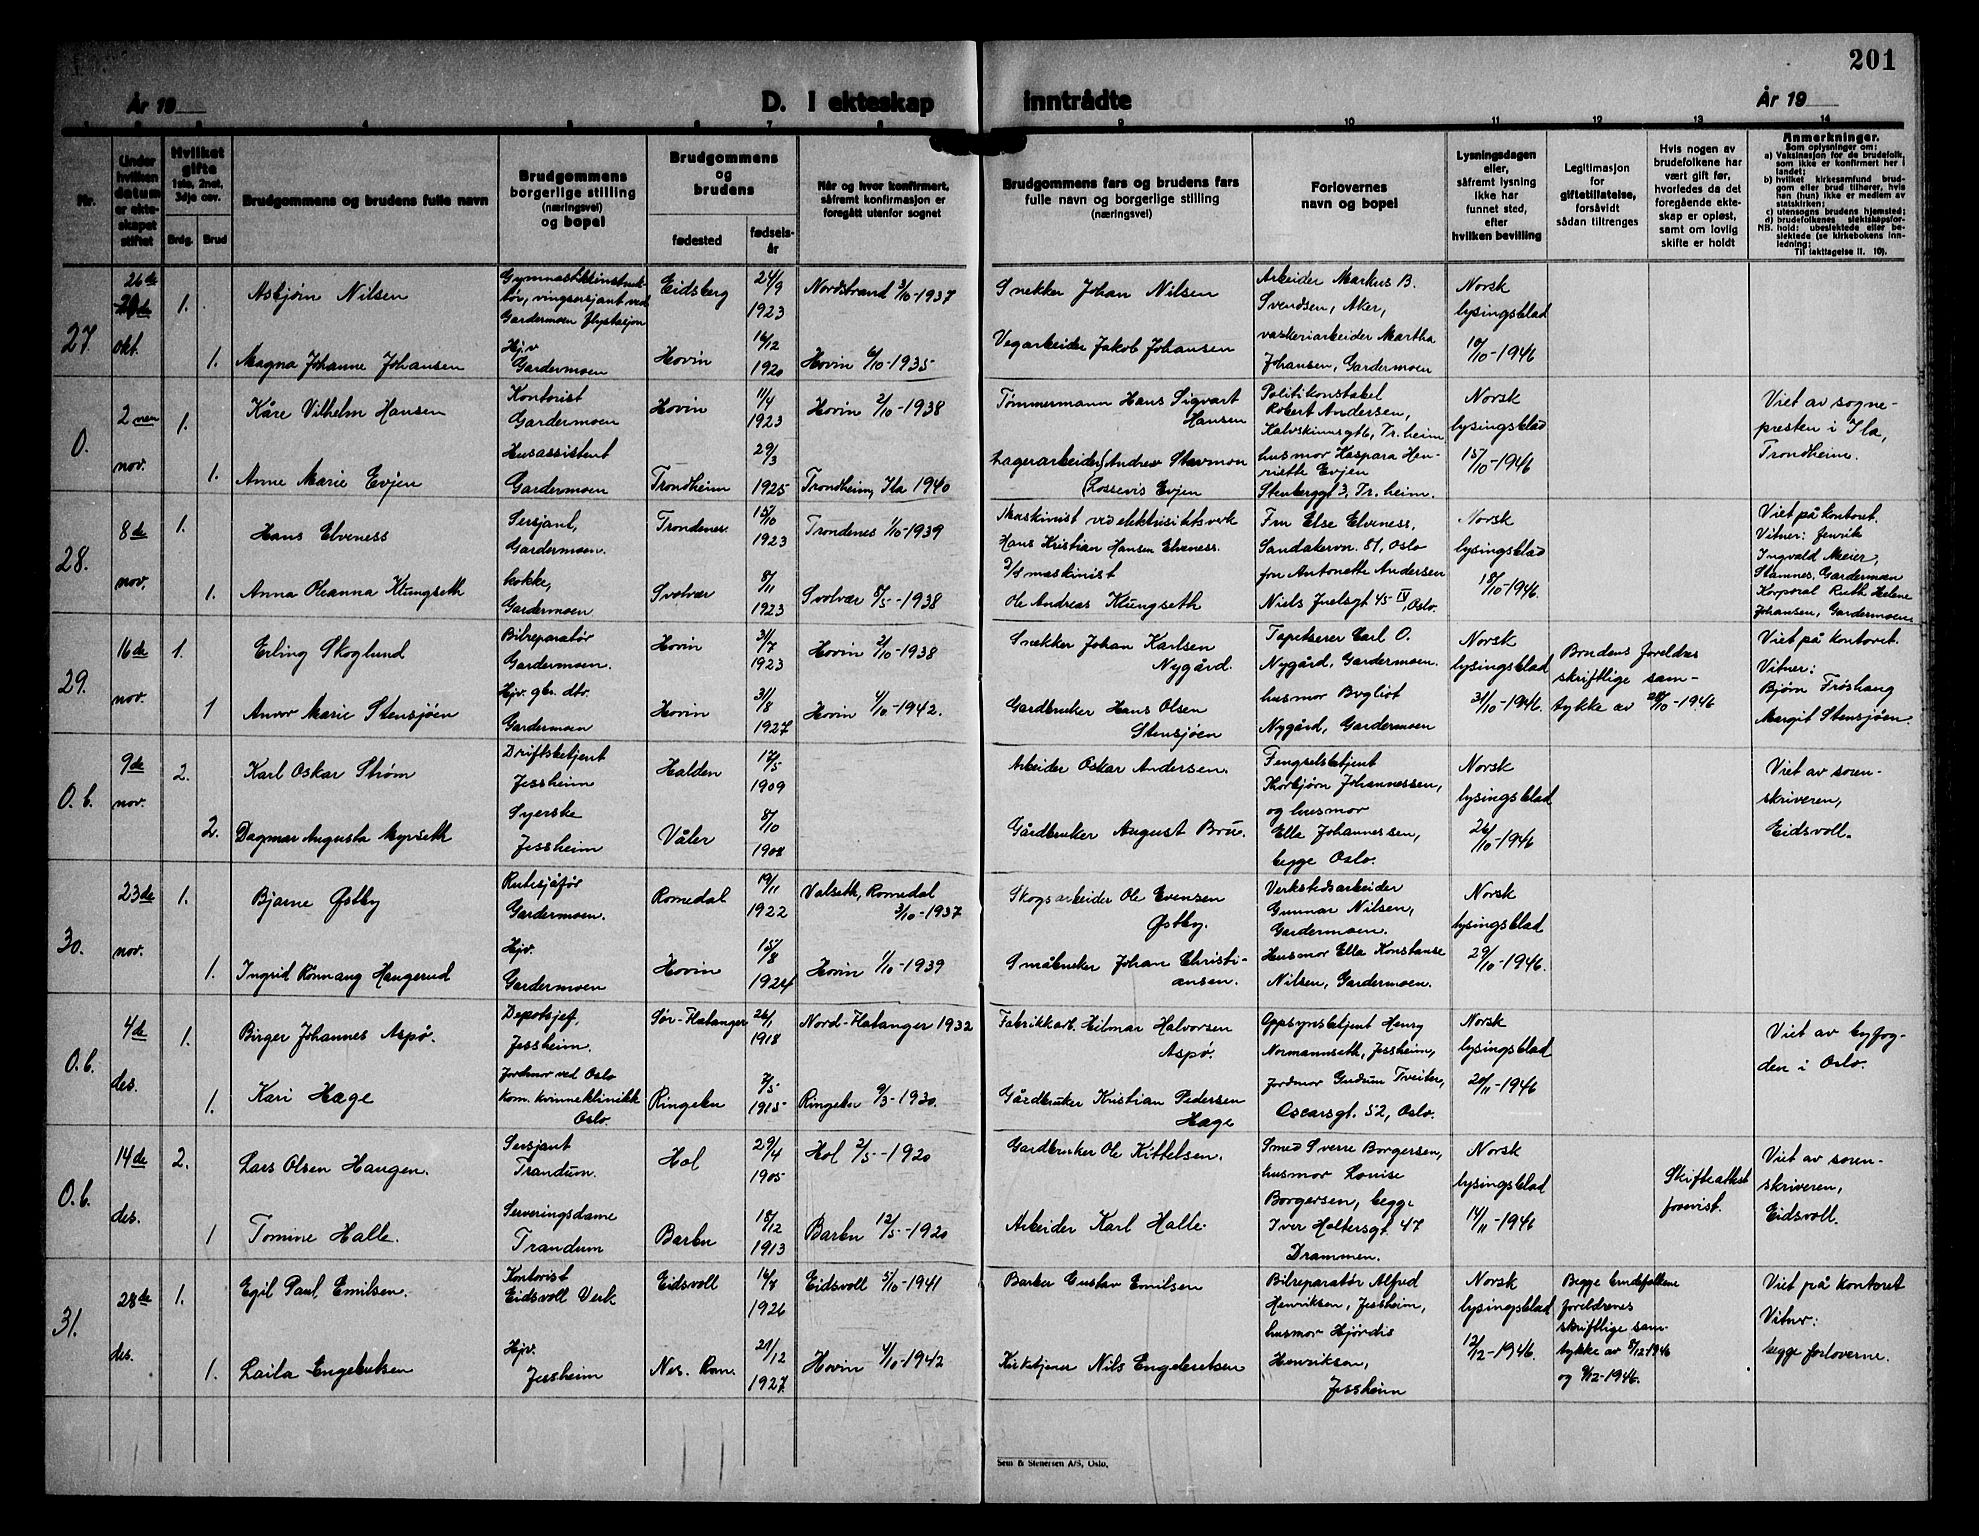 201
År 19
D. I ekteskap inntrådte
År 19
1 2 3 4 5 6 7 8 9 10 11 12 13 14
Nr.
Under hvilken datum er ekteskapet stiftet
Hvilket gifte 1ste, 2net, 3dje osv.
Brdg.
Brud
Brudgommens og brudens fulle navn
Brudgommens borgerlige stilling (næringsvei) og bopel
Brudgommens og brudens
fødested
fødselsår
Når og hvor konfirmert, såfremt konfirmasjon er foregått utenfor sognet
Brudgommens fars og brudens fars fulle navn og borgerlige stilling (næringsvei)
Forlovernes navn og bopel
Lysningsdagen eller, såfremt lysning ikke har funnet sted, efter hvilken bevilling
Legitimasjon for giftetillatelse, forsåvidt sådan tiltrenges
Hvis nogen av brudefolkene har vært gift før, hvorledes da det foregående ekteskap er opløst, samt om lovlig skifte er holdt
Anmerkninger.
Som oplysninger om:
a) Vaksinasjon for de brudefolk, som ikke er konfirmert her i landet;
b) hvilket kirkesamfund brudgom eller brud tilhører, hvis han (hun) ikke er medlem av statskirken;
c) utensogns brudens hjemsted;
d) brudefolkenes slektskapsforhold: ubeslektede eller beslektede (se kirkebokens innledning;
NB.
Til iakttagelse II. 10).
27. 26de okt.
1. Asbjørn Nilsen
Gymnastikkinstruktør, vingsersjant ved Gardermoen flystasjon
Eidsberg 24/9 1923
Nordstrand 3/10-1937
Snekker Johan Nilsen
Arbeider Markus B. Svendsen, Aker,
Norsk lysingsblad 10/10-1946
1. Magna Johanne Johansen
Hjv. Gardermoen
Hovin 16/12 1920
Hovin 6/10-1935
Vegarbeider Jakob Johansen
vaskeriarbeider Martha Johansen, Gardermoen
0. 2nen nov.
1. Kåre Vilhelm Hansen
Kontorist Gardermoen
Hovin 11/4 1923
Hovin 2/10-1938
Tømmermann Hans Sigvart Hansen
Politikonstabel Robert Andersen, Kalvskinnsgt 6, Tr.heim
Norsk lysingsblad 15/10-1946
Viet av sognepresten i Ila, Trondheim.
1. Anne Marie Evjen
Husassistent Gardermoen
Trondheim 29/3 1925
Trondheim, Ila 1940
Lagerarbeider Andrew
Evjen
husmor Kaspara Henriette Evjen
Stenberggt 3, Tr.heim.
28. 8de nov.
1. Hans Elveness
Sersjant, Gardermoen.
Trondenes 15/10 1923
Trondenes 1/10-1939
Maskinist ved elektrisitetsverk Hans Kristian Hansen Elveness.
Fru Else Elveness, Sandakervn. 81, Oslo
Norsk lysingsblad 18/10-1946.
Viet på kontoret. Vitner: Henrik Ingvald Meier, Stamnes, Gardermoen Korporal Ruth Helene Johansen, Gardermoen
1. Anna Oleanna Klungseth
kokke, Gardermoen
Svolvær 8/11 1923
Svolvær 8/5-1938
maskinist Ole Andreas Klungseth
fru Antonette Andersen Niels Juelsgt 45 IV, Oslo.
29. 16de nov.
1. Erling Skoglund
Bilreparatør Gardermoen.
Hovin 31/7 1923
Hovin 2/10-1938
Snekker Johan Karlsen Nygård.
Tapetserer Carl O. Nygård, Gardermoen.
Norsk lysingsblad 31/10-1946.
Brudens foreldres skriftlige samtykke av 28/10-1946
Viet på kontoret. Vitner: Bjørn Frøshaug Margit Stensjøen.
1 Anvor Marie Stensjøen
Hjv. gbr. dtr. Gardermoen
Hovin 31/8 1927
Hovin 4/10-1942.
Gardbruker Hans Olsen Stensjøen
husmor Bogliot Nygård, Gardermoen
0.b. 9de nov.
2. Karl Oskar Strøm
Driftsbetjent Jessheim
Halden 17/5 1909
Arbeider Oskar Andersen.
Fengselsbetjent Thorbjørn Johannessen, og husmor
Norsk lysingsblad 26/10-1946
Viet av sorenskriveren, Eidsvoll.
2. Dagmar Augusta Myrseth
Syerske Jessheim
Våler 8/10 1908
Gårdbruker August Bru.
Elle Johannessen, begge Oslo.
30. 23de nov.
1. Bjarne Østby
Rutesjåfør Gardermoen.
Romedal 19/11 1922
Valseth, Romedal 3/10-1937
Skogsarbeider Ole Evensen Østby.
Verkstedsarbeider Gunnar Nilsen, Gardermoen.
Norsk lysingsblad 29/10-1946.
1. Ingrid Rønnaug Haugerud
Hjv. Gardermoen
Hovin 15/8 1924
Hovin 1/10-1939
Småbruker Johan Christiansen.
Husmor Ella Konstanse Nilsen, Gardermoen.
0.b. 4de des.
1. Birger Johannes Aspø.
Depotsjef, Jessheim.
Sør-Flatanger 26/1 1918
Nord-Flatanger 1932
Fabrikkarb. Hilmar Halvorsen Aspø.
Oppsynsbetjent Henry Normannseth, Jessheim,
Norsk lysingsblad 20/11-1946
Viet av byfogden i Oslo.
1. Kari Hage
Jordmor ved Oslo Kom. kvinneklinikk Oslo.
Ringebu 7/5 1915
Ringebu 9/3-1930.
Gårdbruker Kristian Pedersen Hage
Jordmor Gudrun Tveiter, Oscarsgt. 52, Oslo.
0.b. 14de des.
2. Lars Olsen Haugen.
Sersjant Trandum.
Hol 29/4 1905
Hol 2/5-1920
Gardbruker Ole Kittelsen.
Smed Sverre Borgersen, husmor Louise Borgersen, begge Iver Holtersgt. 47 Drammen.
Norsk lysingsblad 14/11-1946
Skifteattest forevist.
Viet av sorenskriveren, Eidsvoll.
1 Tomine Halle.
Serveringsdame Trandum
Barbu 18/12 1913
Barbu 12/5-1920
Arbeider Karl Halle.
31. 28de des.
1. Egil Paul Emilsen.
Kontorist Eidsvoll Verk
Eidsvoll 16/7 1926
Eidsvoll 5/10-1941
Barber Gustav Emilsen
Bilreparatør Alfred Henriksen, Jessheim,
Norsk lysingsblad 12/12-1946.
Begge brudefolkene foreldrenes skriftlige samtykke av 8/12-1946 og 9/12-1946.
Viet på kontoret Vitner: begge forloverne.
1. Laila Engebretsen
Hjv. Jessheim
Nes. Rom. 21/12 1927.
Hovin 4/10-1942
Kirketjener Nils Engebretsen
husmor Hjørdis Henriksen, Jessheim
Sem & Stenersen A/S, Oslo.